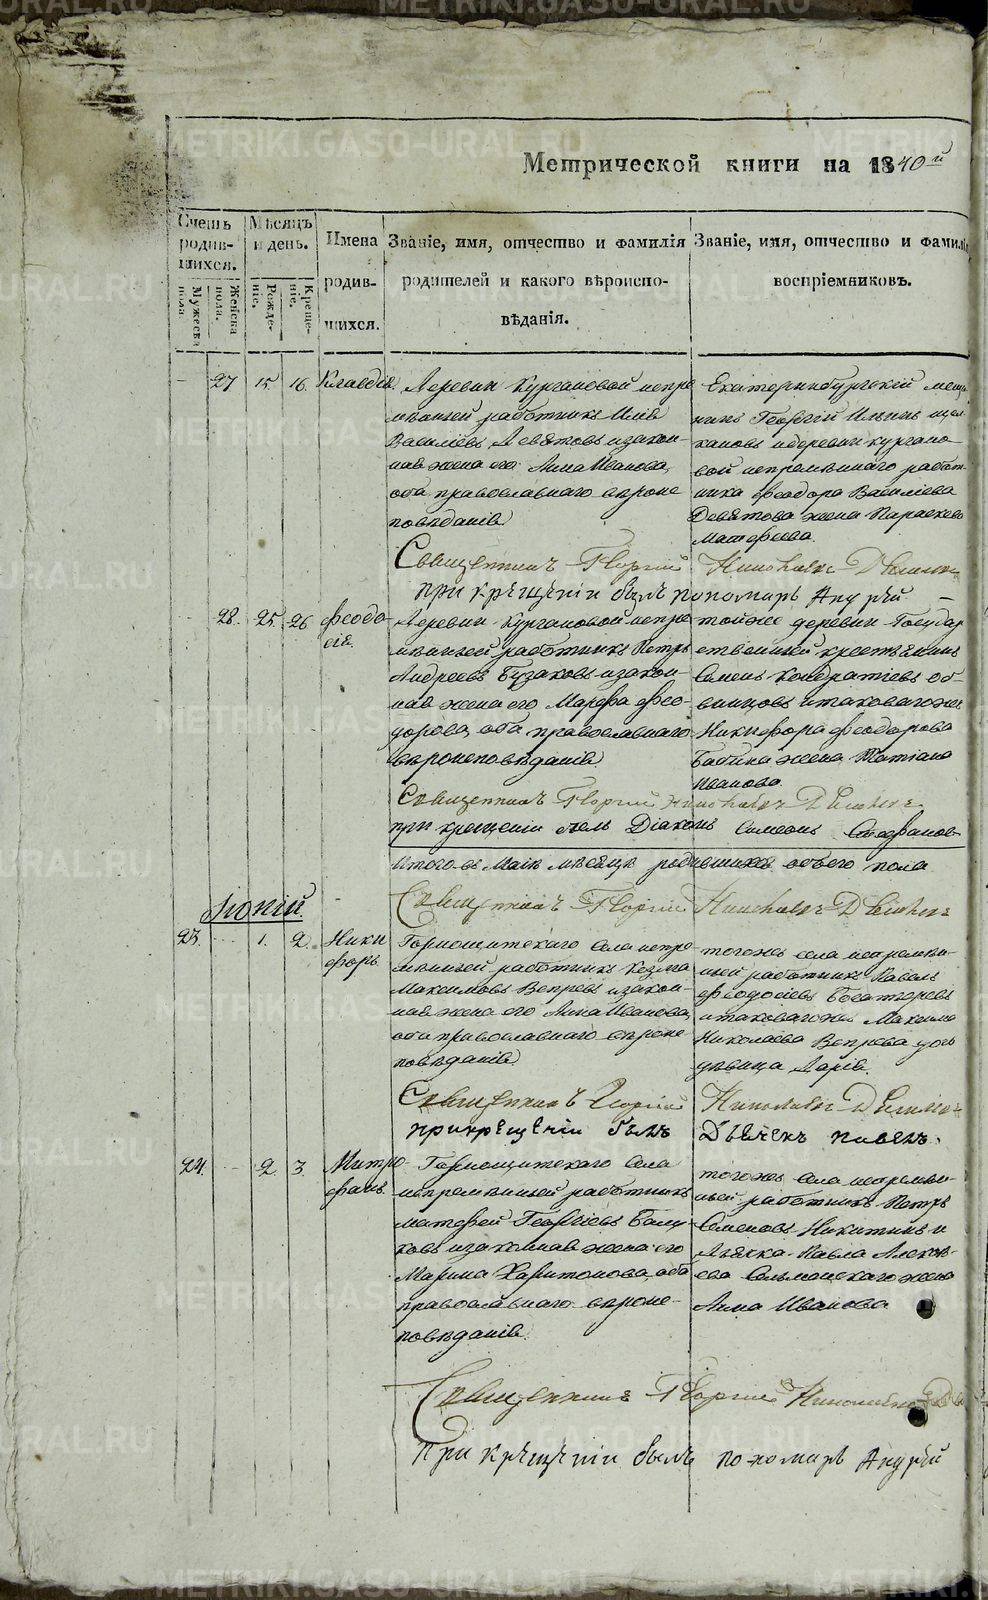 Метрической книги на 1840й
Счетъ родив-шихся.
Мужеска пола.
Женска пола.
Мѣсяцъ и день.
Рожде-ніе.
Креще-ніе.
Имена родив-шихся.
Званіе, имя, отчество и фамилія родителей и какого вѣроиспо-вѣданія.
Званіе, имя, отчество и фамилі воспріемниковъ.
27 15 16 Клавдія.
Деревни Кургановой непре
мѣнный работникъ Илія
Василіевъ Девятовъ и закон-
ная жена его Анна Иванова,
оба православнаго вѣроис
повѣданія
Екатеринбургскій мещ
нинъ Георгій Ильинъ
и деревни Кургано-
вой непремѣннаго работ-
ника Феодора Василіева
Девятова жена Параскева
Матфеева.
Священникъ Георгій Николаевъ
при крещеніи былъ пономарь Андрей
28. 25. 26 Феодо-
сія.
Деревни Кургановой непре
мѣнный работникъ Петръ
Андреевъ Бузаковъ и закон-
ная жена его Марфа Фео-
дорова, оба православнаго
вѣроисповѣданія
той же деревни Государ
ственный крестьянинъ
Семенъ Кондратіевъ Об-
винцовъ и таковаго же
Никифора Феодорова
Бабина жена Татіана
Иванова.
Священникъ Георгій Николаевъ
при крещеніи былъ Діаконъ Симеонъ Стефановъ
Итого въ Маіѣ мѣсяцѣ родившихся обоего пола
Священникъ Георгій Николаевъ
Іюній
23. 1. 2. Ники
форъ
Горнощитскаго села непре
мѣнный работникъ Козма
Максимовъ Вепревъ и закон-
ная жена его Анна Иванова,
оба православнаго вѣроис-
повѣданія
того жъ села непремѣн-
ный работникъ Павелъ
Феодосіевъ Богатыревъ
и таковаго жъ Максима
Николаева Вепрева дочь
дѣвица Дарія.
Священникъ Георгій Николаевъ
при крещеніи былъ Дьячекъ Павелъ.
24. 2. 3. Митро-
фанъ.
Горнощитскаго села
непремѣнный работникъ
Матфей Георгіевъ
и законная жена его
Марина Харитонова, оба
православнаго вѣроис-
повѣданія.
того жъ села непремѣн-
ный работникъ Петръ
Семеновъ Никитинъ и
Дьячка Павла Алексѣ-
ева жена
Анна Иванова
Священникъ Георгій Николаевъ
при крещеніи былъ пономарь Андрей
METRIKI.GASO-URAL.RU